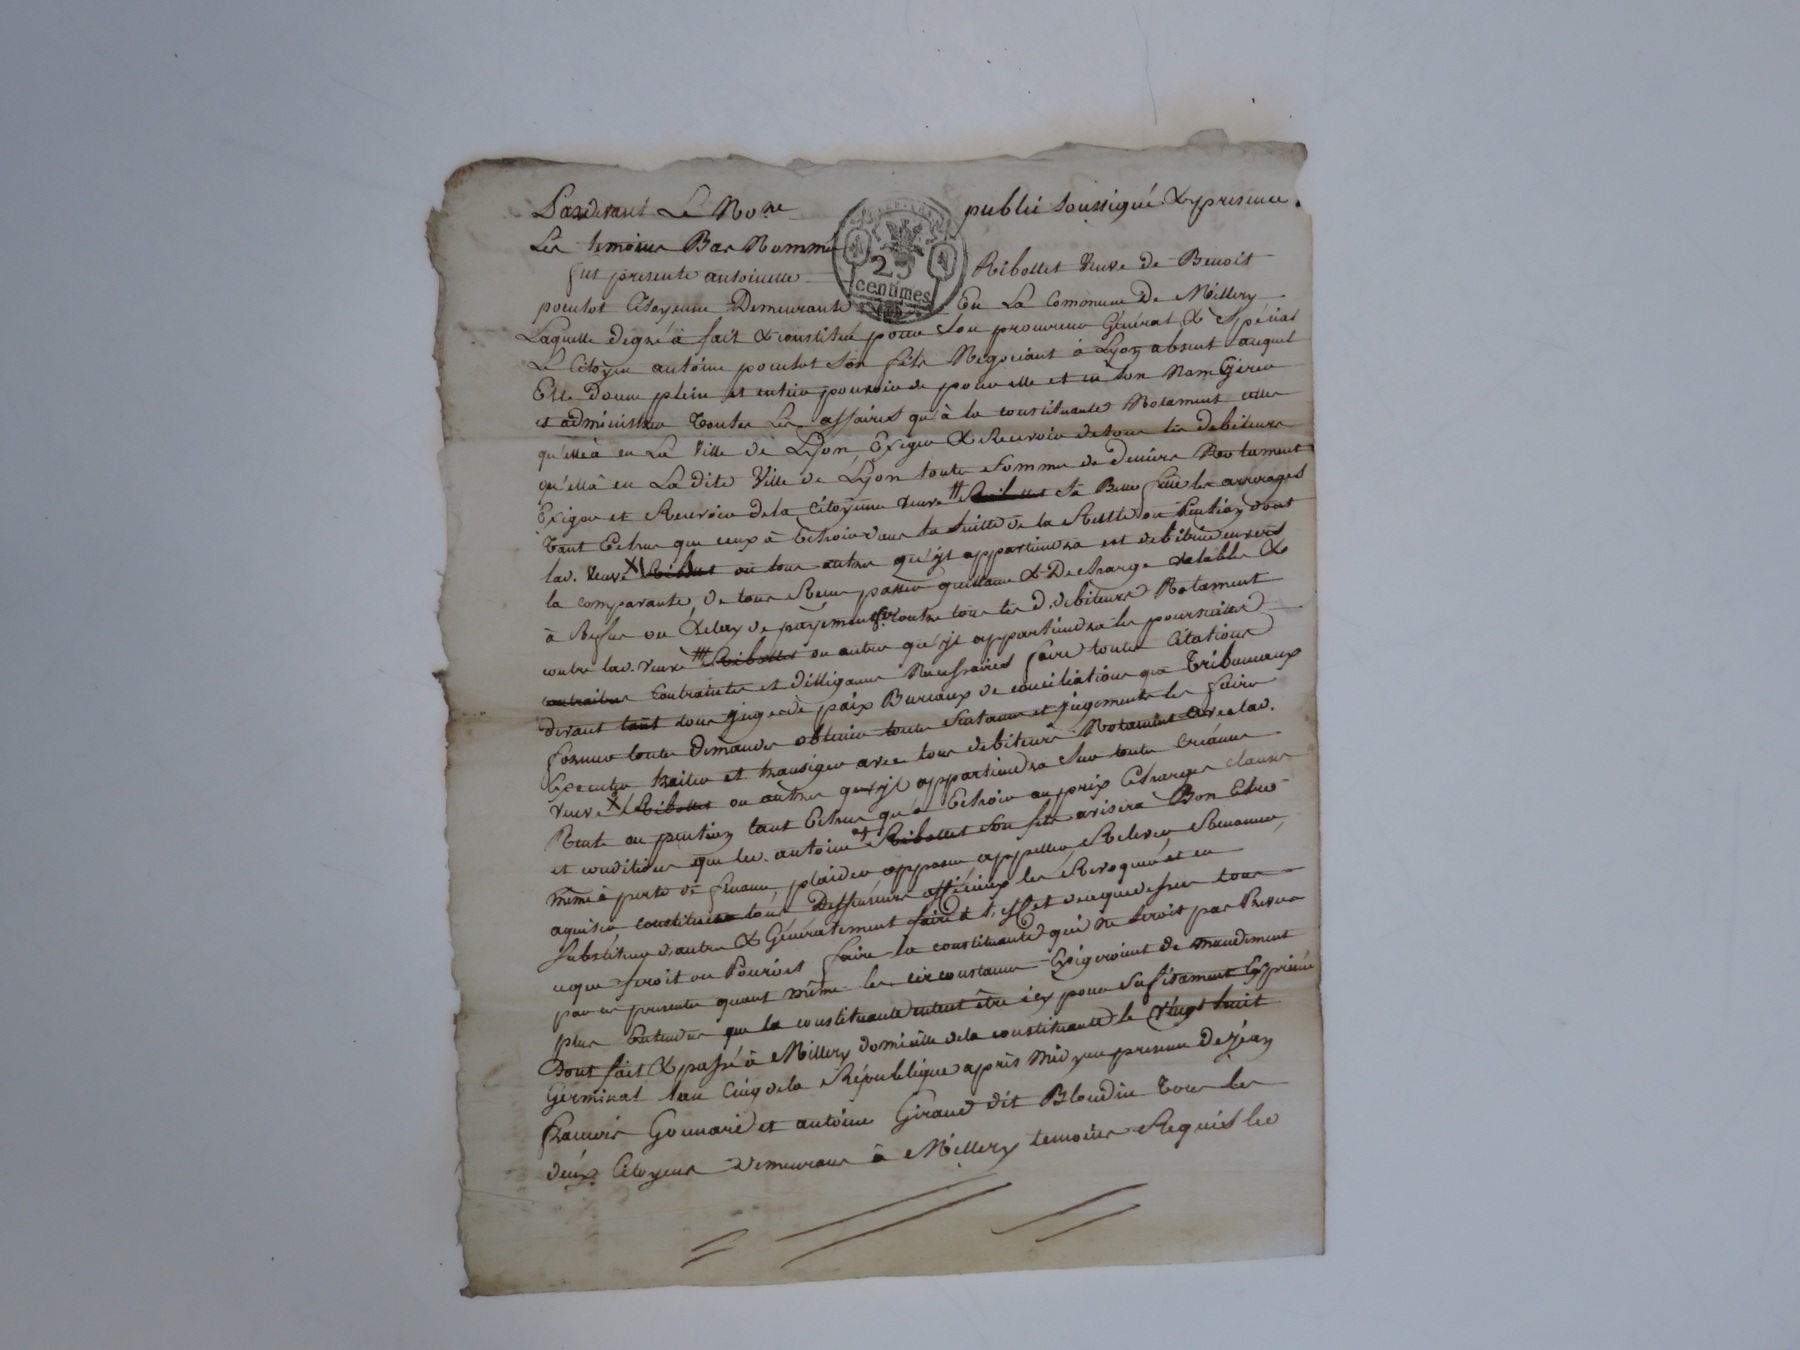 Pardevant Le No.re public soussigné & presence
Les temoins Bas Nommé
25
centimes
fut presente antoinette Ribollet veuve de Benoit
poculot Citoyenne Demeurante En La Commune De Millery
Laquelle degré à fait & constitué pour son procureur Général & Spécial
Le Citoyen antoine poculot son fils Negociant à Lyon absent auquel
Elle donne plein et entier pouvoir de pour elle et en son Nom Gérer
et administrer toutes Les affaires qu'à la constituante Notament celles
qu'elle à en La Ville de Lyon, Exiger & Recevoir de tous les debiteurs
qu'ella en Ladite Ville de Lyon toute somme de deniers Notament
Exiger et Recevoir de la Citoyenne veuve # Ribollet sa Belle fille les arrerages
tant Echus que ceux à Echoir dans la suitte de la Rente ou pention dont
lad. veuve X Ribollet ou tous autres qu'yl appartiendra est debitrice envers
la comparante, de tous Reçus passer quittance & Decharge valable &
à Refus ou delay de payement contre tous les d. debiteurs Notament
contre lad. veuve # Ribollet ou autre qu'yl appartiendra les poursuittes
contraites contraintes et dilligence Necessaires faire toutes Citations
devant tant tous juges de paix Bureaux de conciliations que Tribunaux
former toutes demandes obtenir toutes sentances et jugements les faire
Executer traiter et transiger avec tous debiteurs Notament avec lad.
veuve X Ribollet ou autres qu'yl appartiendra sur toutes créances
Rente ou pention tant Echus qu'à Echoir au prix Charges clauses
et conditions que led. antoine Ribollet son fils avisera Bon Etre
même à perte de finance, plaider opposer appeller, Relever, Renoncer,
aquiescer constituer tous Deffenseurs officieux les Revoquer et en
substituer d'autres & Généralement faire
ceque feroit ou Pouroit faire la constituante qui ne seroit pas Prevue
par ces presentes quant même les circonstances Exigeroient de mandement
plus Etendus que la constituante entent être icy pour sufisament Exprimé
Dont fait & passé à Millery domicille de la constituante le vingt huit
Germinal l'an Cinq de la République après Midy en presence de jean
francois Gonnard et antoine Giraud dit Blondin tous les
deux Citoyens demeurans à Millery temoins Requis led